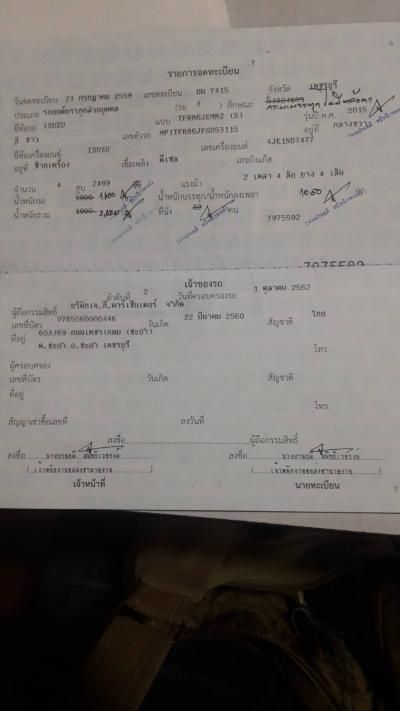 6
รายการจดทะเบียน
วันจดทะเบียน 21 กรกฎาคม 2558 เลขทะเบียน ผม 7415 จังหวัด เพชรบุรี
ประเภท รถยนต์บรรทุกส่วนบุคคล (รย. 3 ) ลักษณะ
ยี่ห้อรถ ISUZU แบบ TFR86JEMN2 (S) รุ่นปี ค.ศ. 2015
สี ขาว เลขตัวรถ MP1TFR86JFG053115 อยู่ที่ กลางขวา
ยี่ห้อเครื่องยนต์ ISUZU เลขเครื่องยนต์ 4JK1ND7477
อยู่ที่ ซ้ายเครื่อง เชื้อเพลิง ดีเซล เลขถังแก๊ส
จำนวน 4 สูบ 2499 ซีซี แรงม้า 2 เพลา 4 ล้อ ยาง 4 เส้น
น้ำหนักรถ น้ำหนักบรรทุก/น้ำหนักลงเพลา 1050 กก.
น้ำหนักรวม ที่นั่ง 12 คน 7975592
7975592
เจ้าของรถ
ลำดับที่ 2 วันที่ครอบครองรถ 1 ตุลาคม 2562
ผู้ถือกรรมสิทธิ์ บริษัทเจ.ดี.คาร์เซ็นเตอร์ จำกัด
เลขที่บัตร 0765560000446 วันเกิด 22 มีนาคม 2560 สัญชาติ ไทย
ที่อยู่ 653/69 ถนนเพชรเกษม (ชะอำ)
ต.ชะอำ อ.ชะอำ เพชรบุรี โทร.
ผู้ครอบครอง
เลขที่บัตร วันเกิด สัญชาติ
ที่อยู่
โทร.
สัญญาเช่าซื้อเลขที่ ลงวันที่
ลงชื่อ ผู้ถือกรรมสิทธิ์
ลงชื่อ ลงชื่อ
(เจ้าพนักงานขนส่งชำนาญงาน) (เจ้าพนักงานขนส่งชำนาญงาน)
เจ้าหน้าที่ นายทะเบียน
7